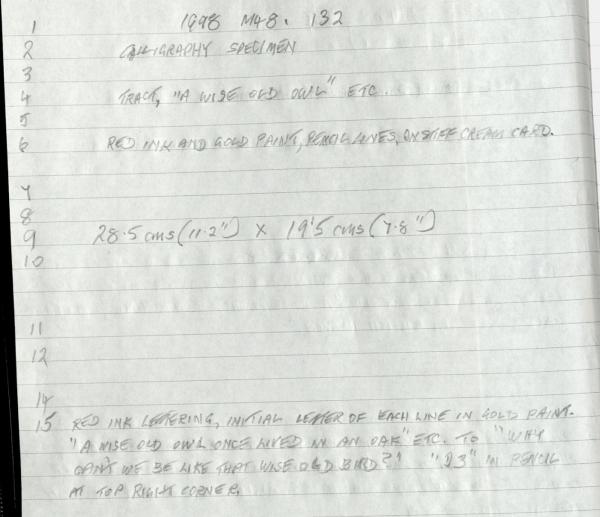 1 1998 M48. 132
2 CALLIGRAPHY SPECIMEN
3
4 TRACT, "A WISE OLD OWL" ETC.
5
6 RED INK AND GOLD PAINT, PENCIL LINES, ON STIFF CREAM CARD.
7
8
9 28.5 cms (11.2") x 19.5 cms (7.8")
10
11
12
14
15 RED INK LETTERING, INITIAL LETTER OF EACH LINE IN GOLD PAINT.
"A WISE OLD OWL ONCE LIVED IN AN OAK" ETC. TO "WHY
CAN'T WE BE LIKE THAT WISE OLD BIRD?" IN PENCIL
AT TOP RIGHT CORNER.